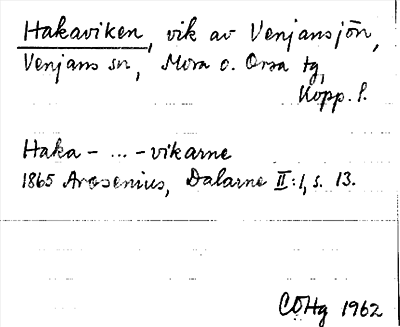 Hakaviken, vik av Venjansjön,
Venjans sn, Mora o. Orsa tg,
Kopp. l.
Haka- ... -vikarne
1865 Arosenius, Dalarne II:1, s. 13.
CÖHg 1962